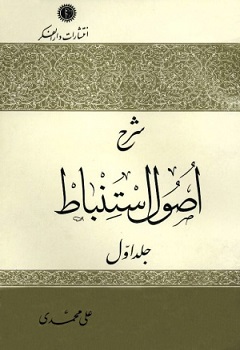 انتشارات دارالفکر
شرح
اصول استنباط
جلد اول
علی محمدی